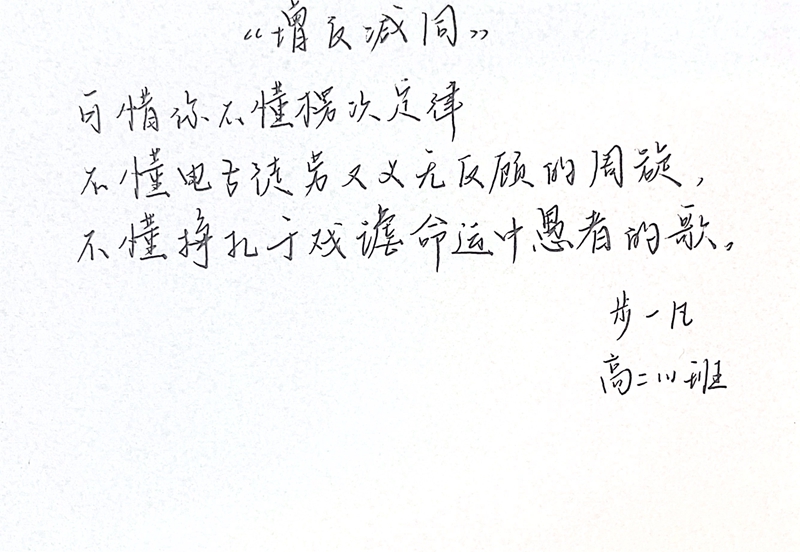 “增反减同”
可惜你不懂楞次定律
不懂电古徒劳又义无反顾的周旋，
不懂挣扎于戏谑命运中愚者的歌。
步一凡
高二(1)班